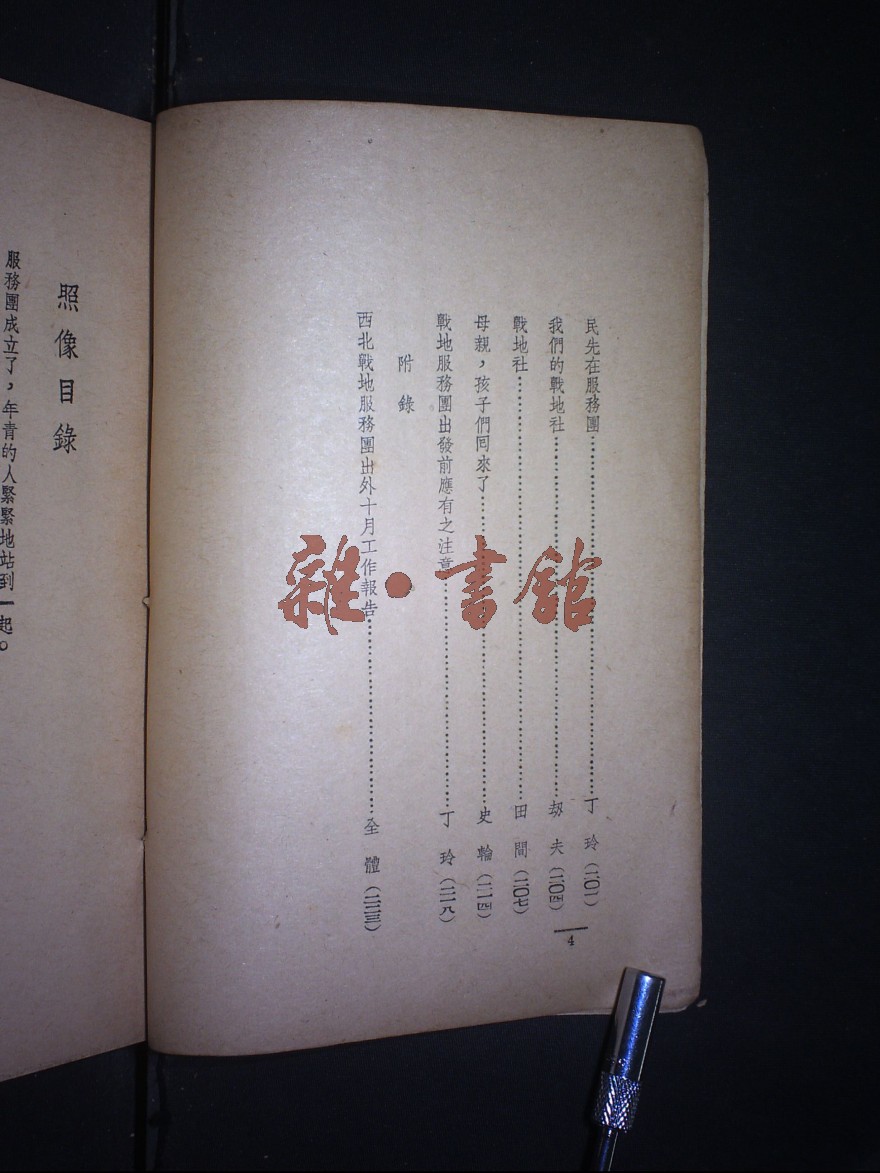 民先在服務團……丁 玲(二〇一)
我們的戰地社……劫 夫(二〇四)
戰地社……田 間(二〇七)
母親,孩子們囘來了……史 輪(二一四)
戰地服務團出發前應有之注意……丁 玲(二一八)
附 錄
西北戰地服務團出外十月工作報告……全 體(二二三)
4
照像目錄
服務團成立了,年青的人緊緊地站到一起。
雜•書館